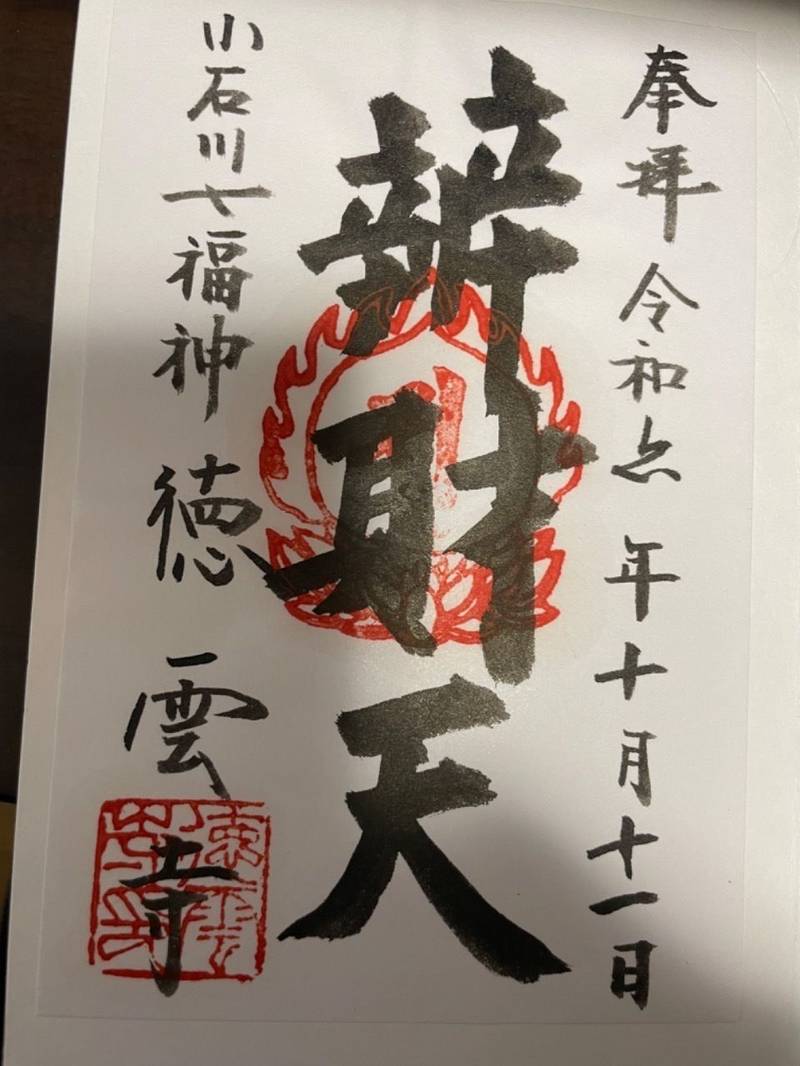 奉拝 令和五年十月十一日
辨財天
小石川七福神 徳雲寺